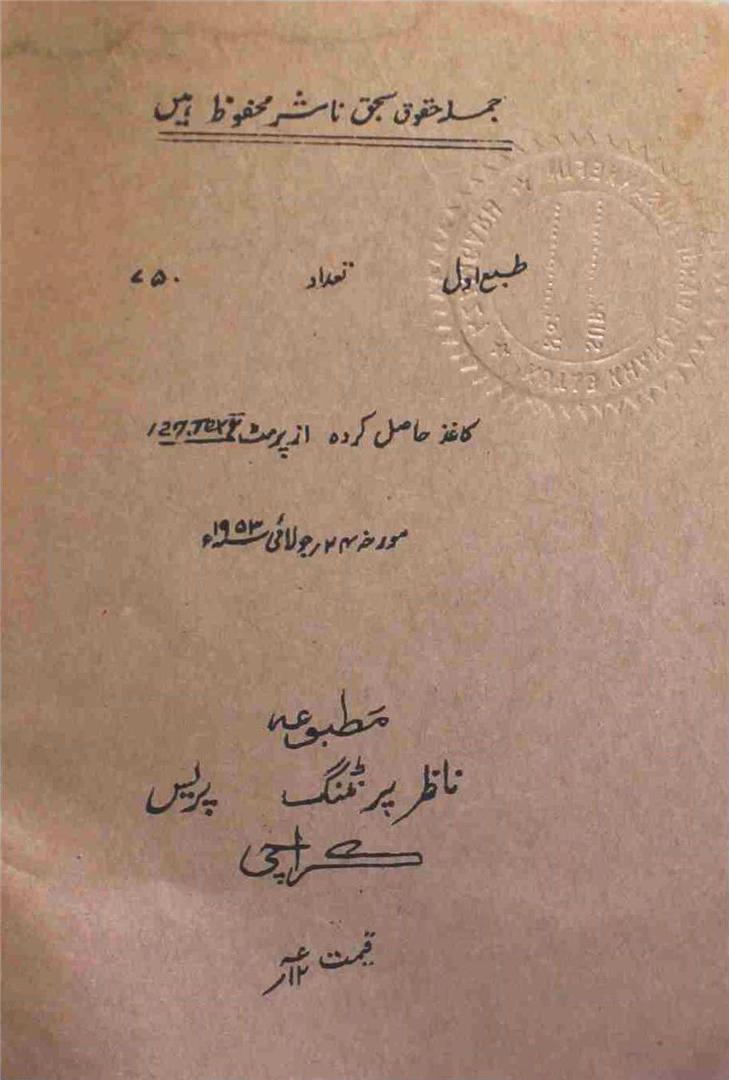 جملہ حقوق بحق ناشر محفوظ ہیں
طبع اول تعداد ۷۵۰
کاغذ حاصل کردہ از پرمٹ 127.TCXY
مورخہ ۲۴ر جولائی ۱۹۵۳ء
مطبوعہ
ناظر پرنٹنگ پریس
کراچی
قیمت